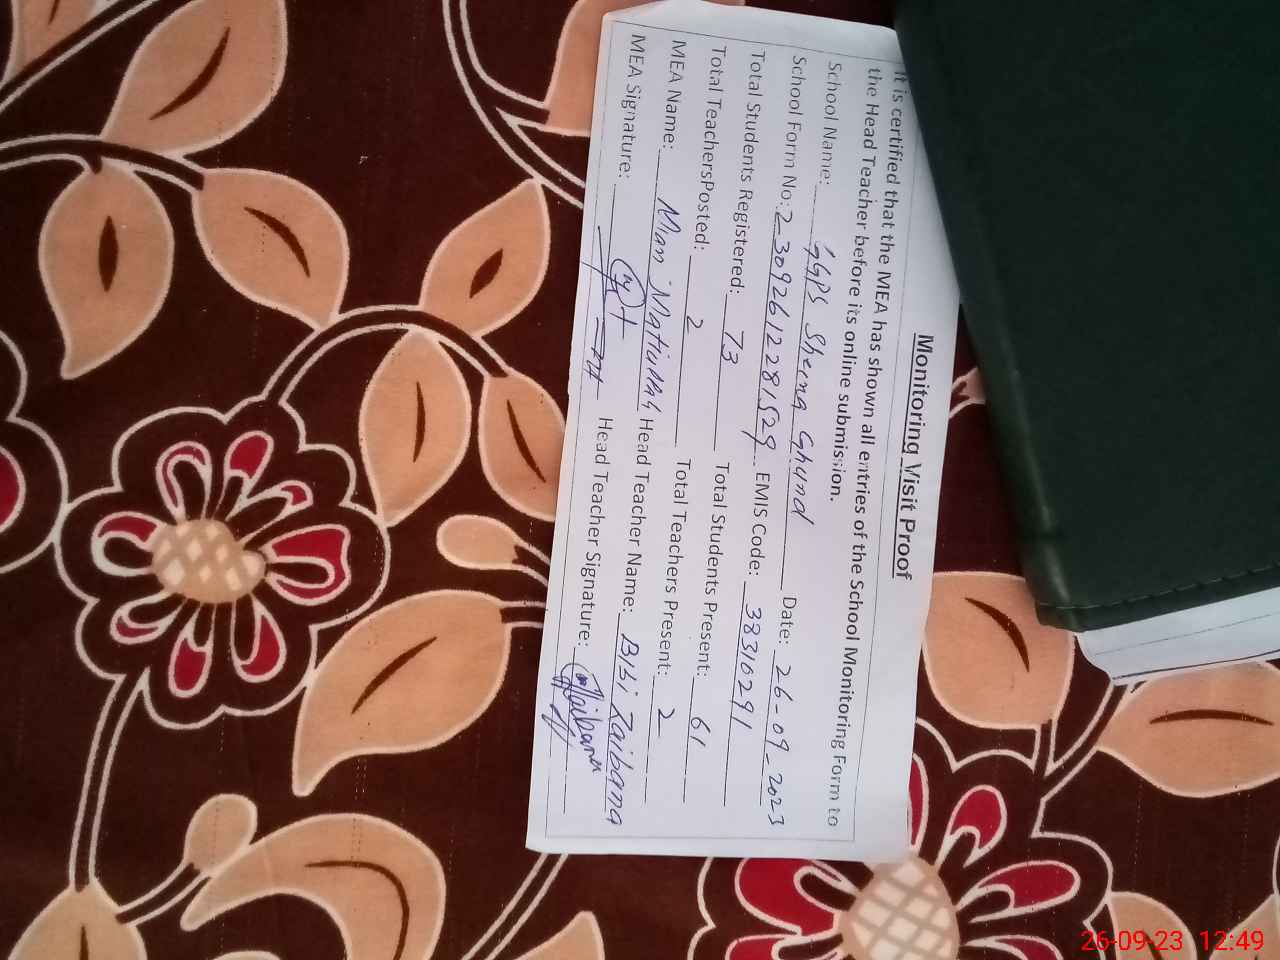 Monitoring Visit Proof
It is certified that the MEA has shown all entries of the School Monitoring Form to
the Head Teacher before its online submission.
School Name: GGPS Sheena Ghund Date: 26-09-2023
School Form No: 23092612281529 EMIS Code: 38310291
Total Students Registered: 73 Total Students Present: 61
Total TeachersPosted: 2 Total Teachers Present: 2
MEA Name: Mian Matiullah Head Teacher Name: Bibi Zaibana
MEA Signature: Head Teacher Signature:
26-09-23 12:49